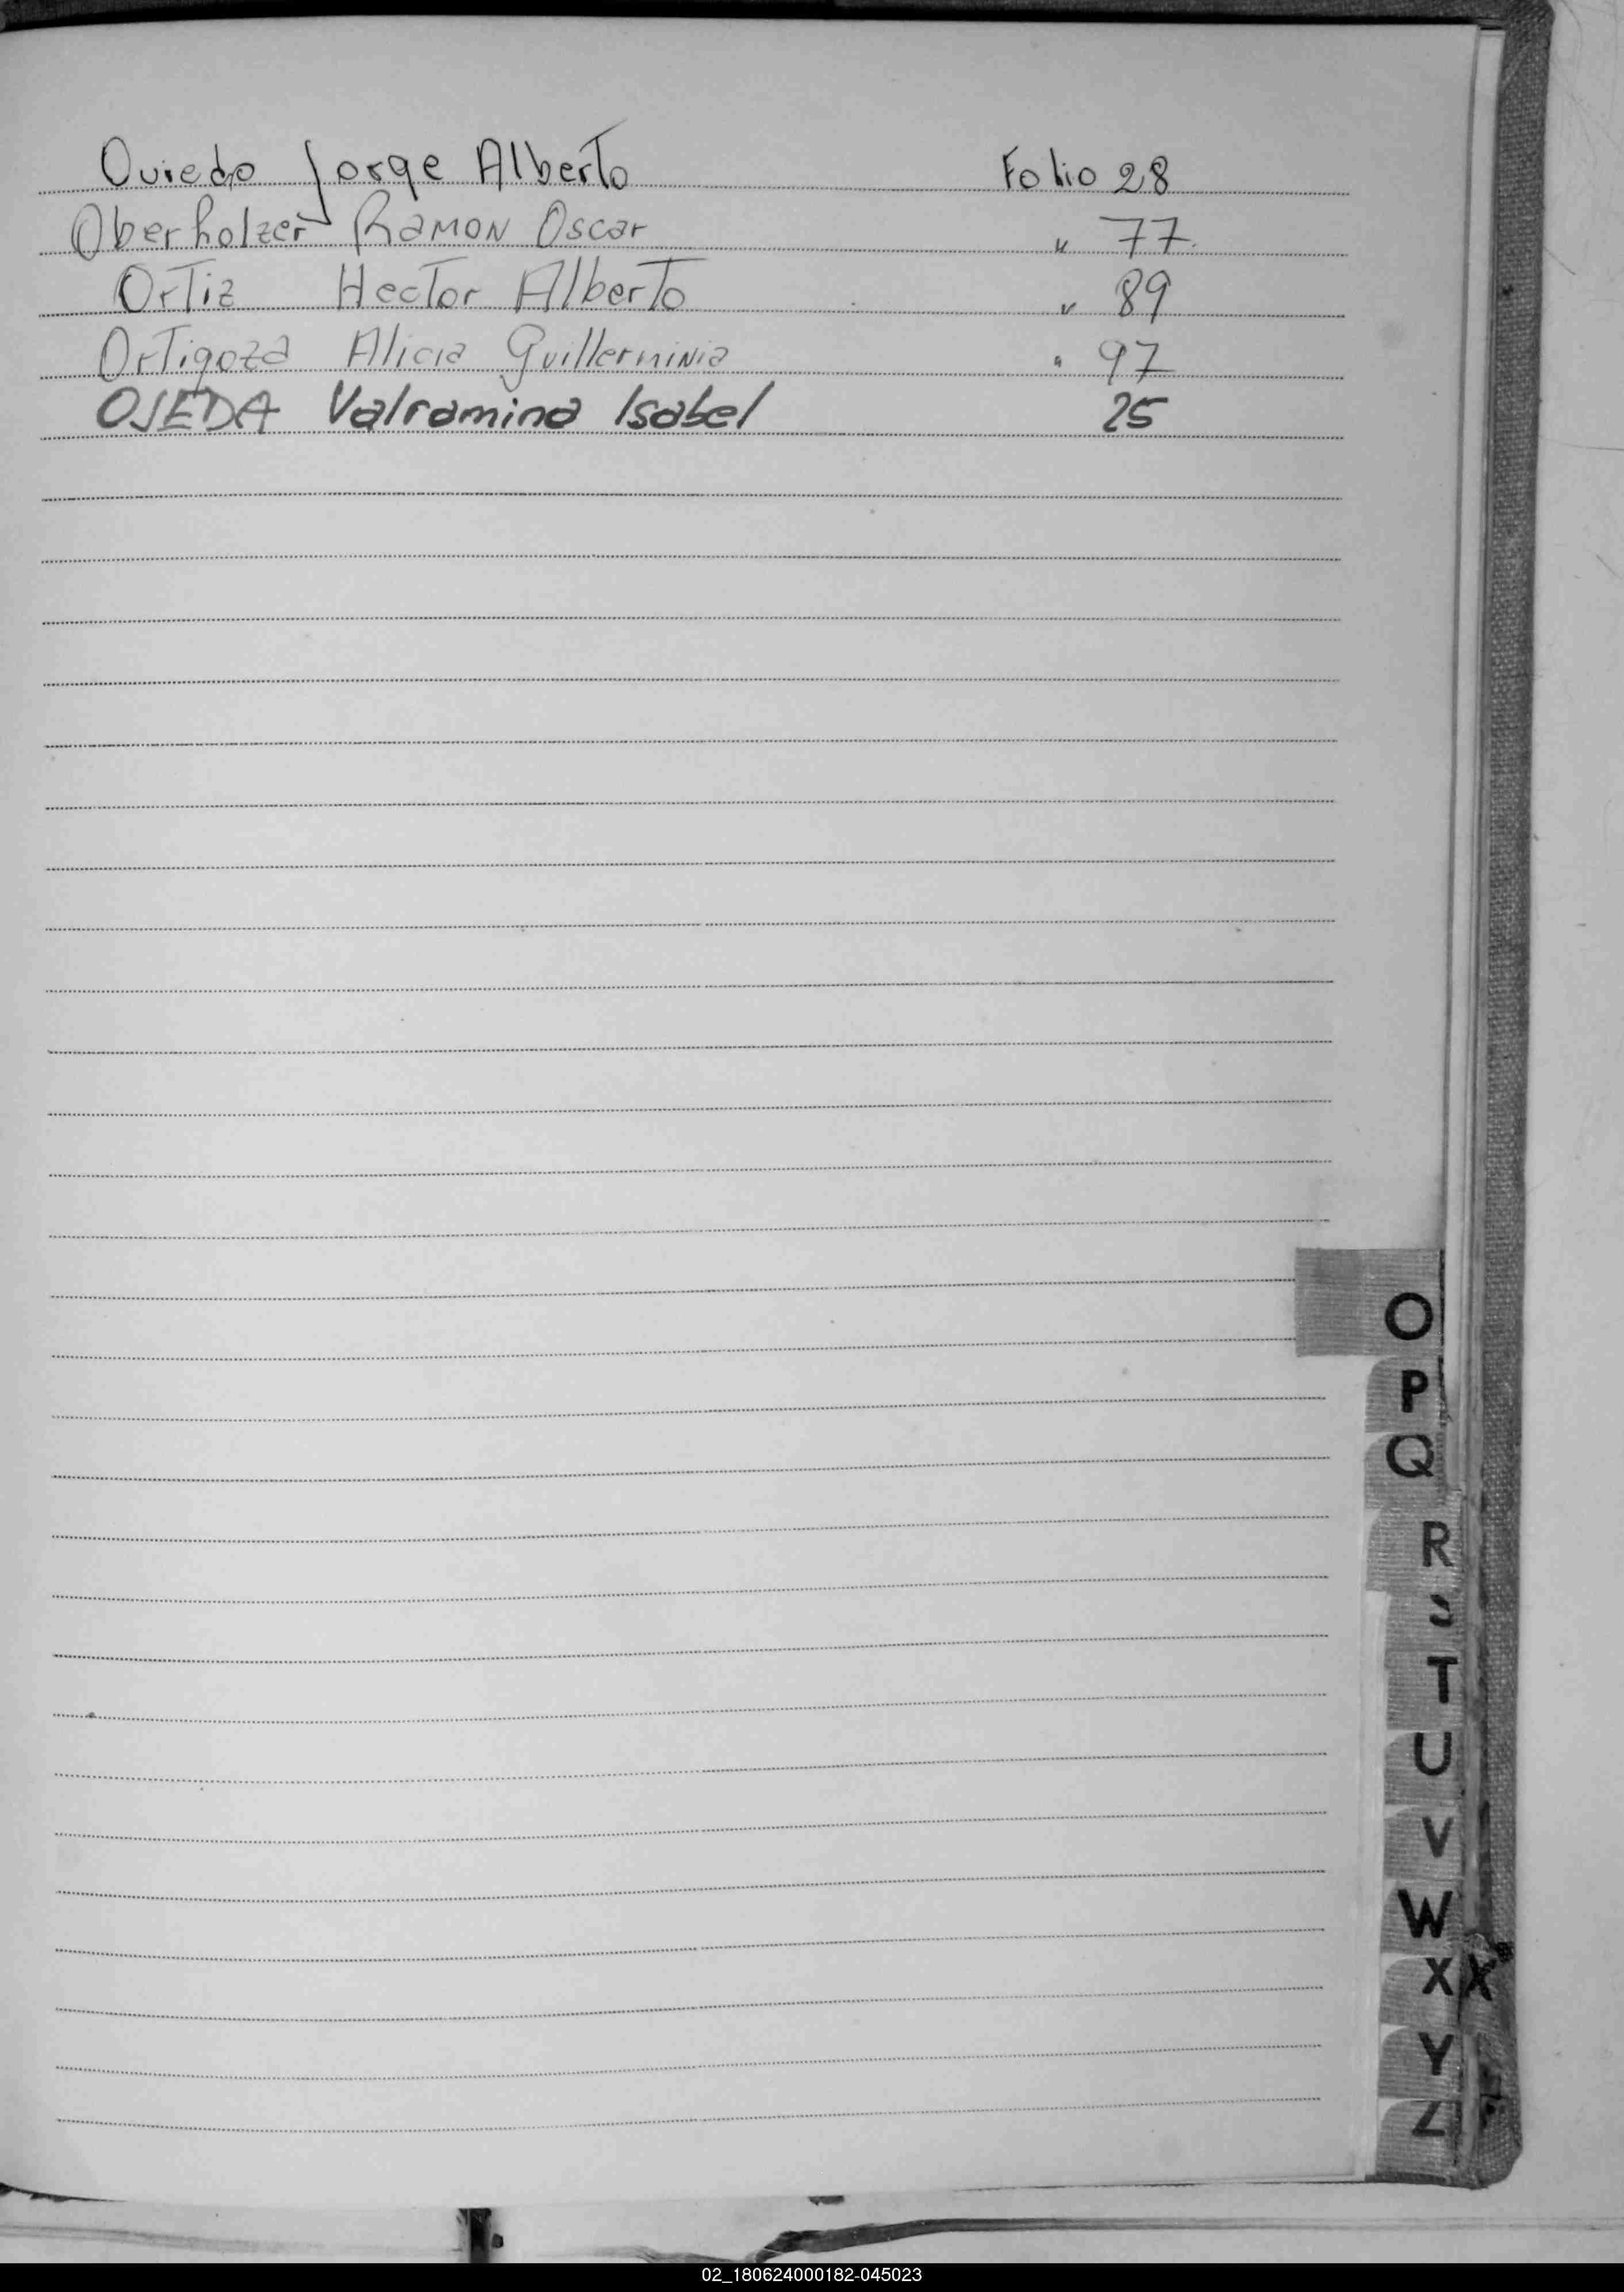 Oviedo Jorge Alberto Folio 28
Oberholzer Ramon Oscar " 77
Ortiz Hector Alberto " 89
Ortigoza Alicia Guillerminia " 97
OJEDA Valramina Isabel 25
O
P
Q
R
S
T
U
V
W
X X
Y
Z
02_180624000182-045023